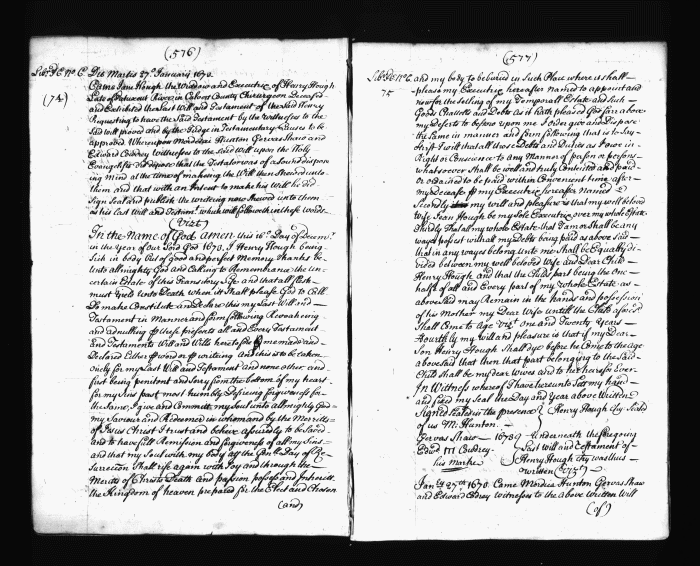 (576)
Die Martis 27th January 1670.
(74)
Came Jane Hough the Widdow and Executrix of Henry Hough
Late of Patuxent River in Calvert County Chirurgeon Deceased
and Exhibited the Last Will and Testament of the Said Henry
Requesting to have the Said Testament by the Witnesses to the
Said Will proved and by the Judge in Testamentary Causes to be
approved Whereupon Mordecai Hunton Gervas Shaw and
Edward Cowdrey witnesses to the Said Will upon the Holy
Evangelists do depose that the Testator was of a Sound dispos
ing Mind at the time of makeing the Will then Shewed unto
them and that with an Intent to make his Will he did
Sign Seal and publish the writeing now Shewed unto them
as his Last Will and Testamt which will followeth in these words
(Vizt)
In the Name of God amen this 16th Day of Decemr
in the Year of our Lord God 1670. I Henry Hough being
Sick in body but of Good and perfect Memory thanks be
unto allmighty God and Calling to Remembrance the un
certain Estate of this Transitory Life and that all flesh
must yield unto Death when it Shall please God to Call
Do make Constitute and Declare this my Last Will and
Testament in Manner and form following Revoakeing
and adnulling by these presents all and Every Testament
and Testaments Will and Wills heretofore by me made and
Declared Either by word or by writing and this is to be taken
onely for my Last Will and Testament and none other. and
first being penitent and Sorry from the bottom of my heart
for my Sins past most humbly Desireing forgiveness for
the Same, I give and Committ my Soul unto allmighty God
my Saviour and Redeemer in whom and by the Merrits
of Jesus Christ I trust and believe assuredly to be Saved
and to have full Remission and forgiveness of all my Sins
and that my Soul with my body at the Genll Day of Re
surrection Shall rise again with Joy and through the
Merits of Christs Death and passion possess and Inheritt
the Kingdom of heaven prepared for the Elect and Chosen
(and)
(577)
75
and my body to be buried in Such Place where it shall
please my Executrix hereafter Named to appoint and
now for the Setling of my Temporall Estate and Such
Goods Chattells and Debts as it hath pleased God far above
my deserts to bestow upon me I do order give and Dispose
the Same in manner and form following that is to Say
first I will that all those Debts and Duties as I owe in
Right or Conscience to any Manner of person or persons
whatsoever Shall be well and truly Contented and paid
or ordained to be paid within Convenient time after
my Decease by my Executrix hereafter Named
Secondly my will and pleasure is that my well beloved
wife Jean Hough be my Sole Executrix over my whole Estate
Thirdly That all my whole Estate that I am or Shall be any
wayes possest with all my Debts being paid as above Said
that in any wayes belong unto me Shall be Equally di
vided between my well beloved Wife and Dear Child
Henry Hough and that the Childs part being the one
halfe of all and Every part of my Whole Estate as
abovesaid may Remain in the hands and possession
of his Mother my Dear Wife untill the Child afores'd
Shall Come to Age Vizt one and Twenty Years
Fourthly my will and pleasure is that if my Dear
Son Henry Hough Shall Dye before he Come to the age
abovesaid that then that part belonging to the Said
Child Shall be my dear Wives and to her heires for Ever.
In Witness whereof I have hereunto Set my hand
and fixed my Seal the Day and Year above Written
Signed Sealed in the presence Henry Hough Seald
of us M: Hunton.
Gervas Shaw 1670 Underneath the foregoing
Edwd Cudrey. Last will and testament of
his marke Henry Hough thy was thus
written (Vizt)
Jany 27th 1670. Came Mordica Hunton Gervas Shaw
and Edward Cudrey Witnesses to the above Written Will
(of)